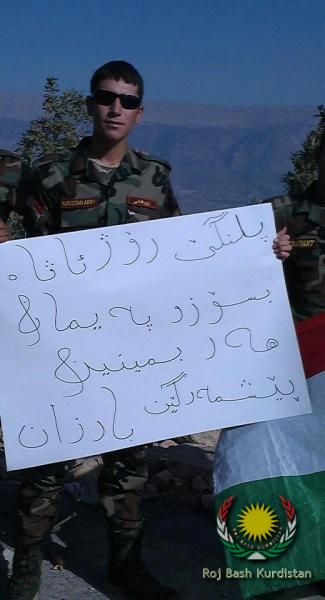 KURDISTAN ARMY
پلنگێن رۆژ ئاڤا
بسۆز و پەیمان
هەر بمینین
پێشمەرگێن بارزان
Roj Bash Kurdistan